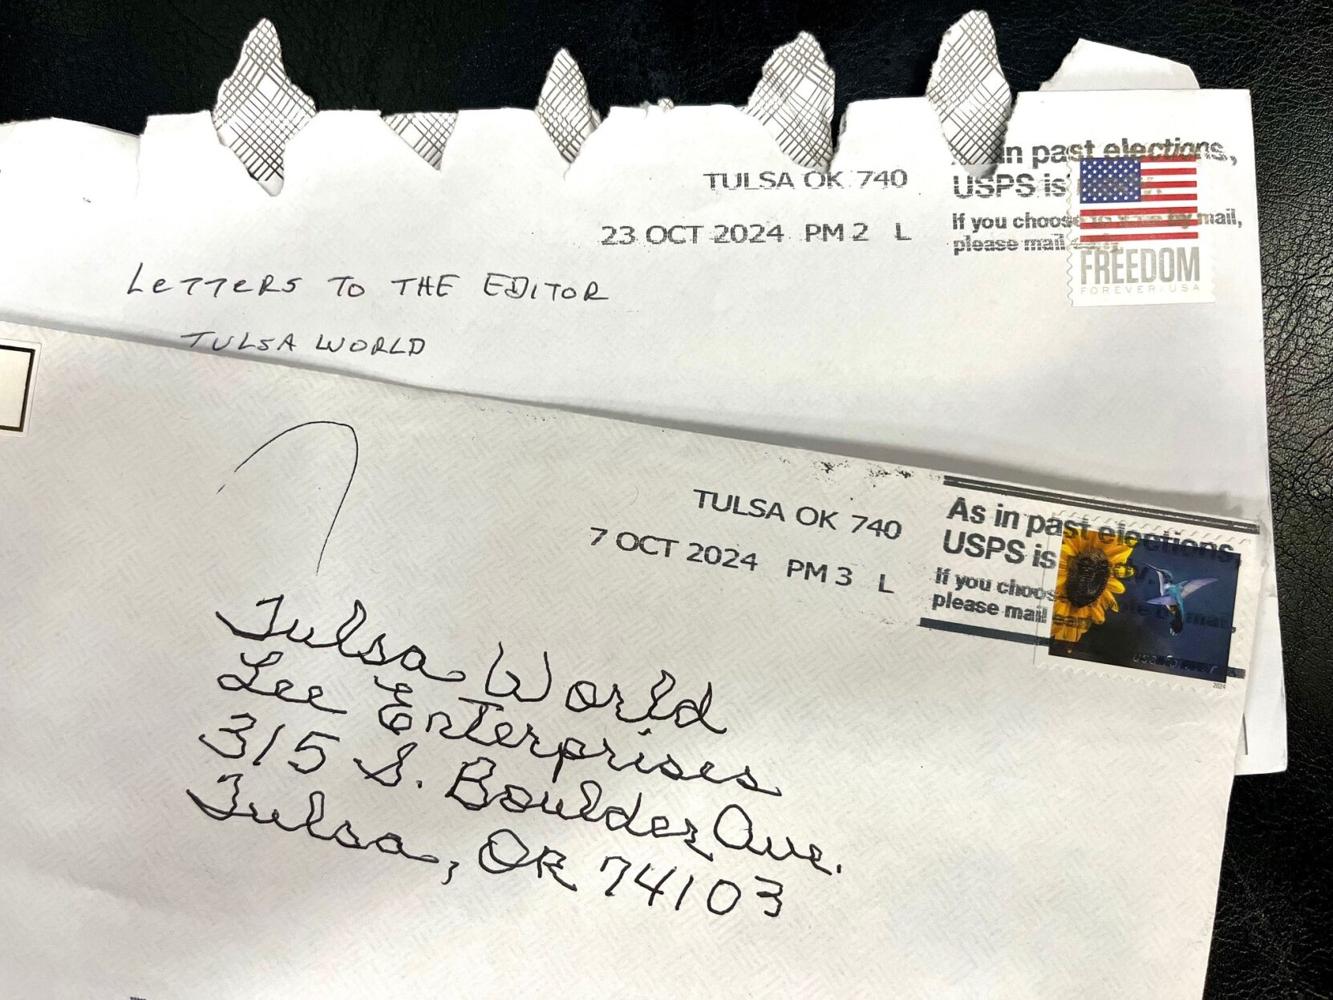 TULSA OK 740
in past elections,
USPS is
23 OCT 2024 PM 2 L
If you choose to vote by mail,
please mail early.
FREEDOM
FOREVER/USA
LETTERS TO THE EDITOR
TULSA WORLD
TULSA OK 740
7 OCT 2024 PM 3 L
As in past elections,
USPS is
If you choose
please mail early
2024
Tulsa World
Lee Enterprises
315 S. Boulder Ave.
Tulsa, OK 74103